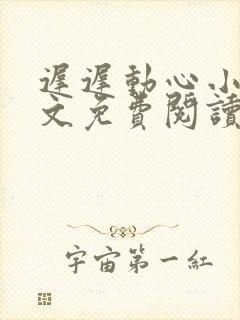 遲遲動心小
文免費閱讀
宇宙第一紅